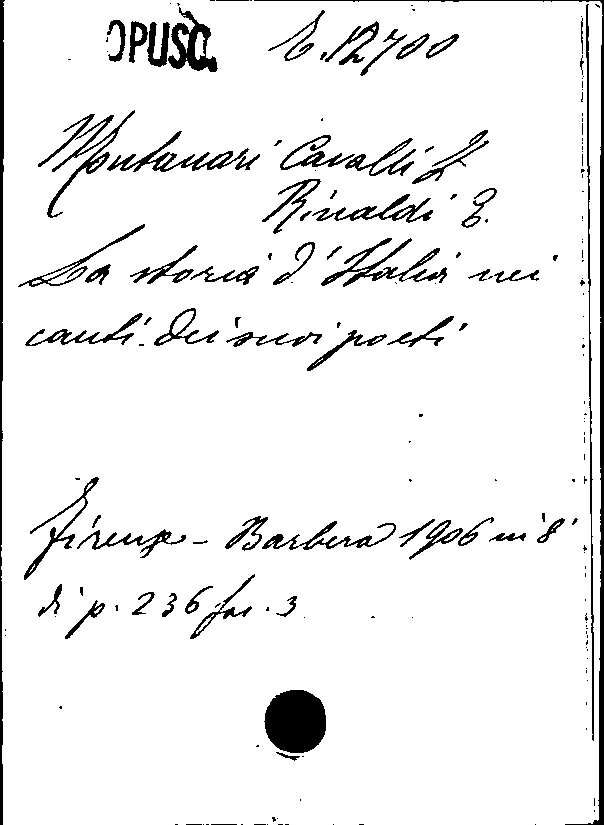 OPUSC. E.12700
Montanari Cavalli L
Rinaldi E.
La storia d'Italia nei
canti dei suoi poeti
Firenze - Barbera 1906 in 8°
di p. 236 fas. 3